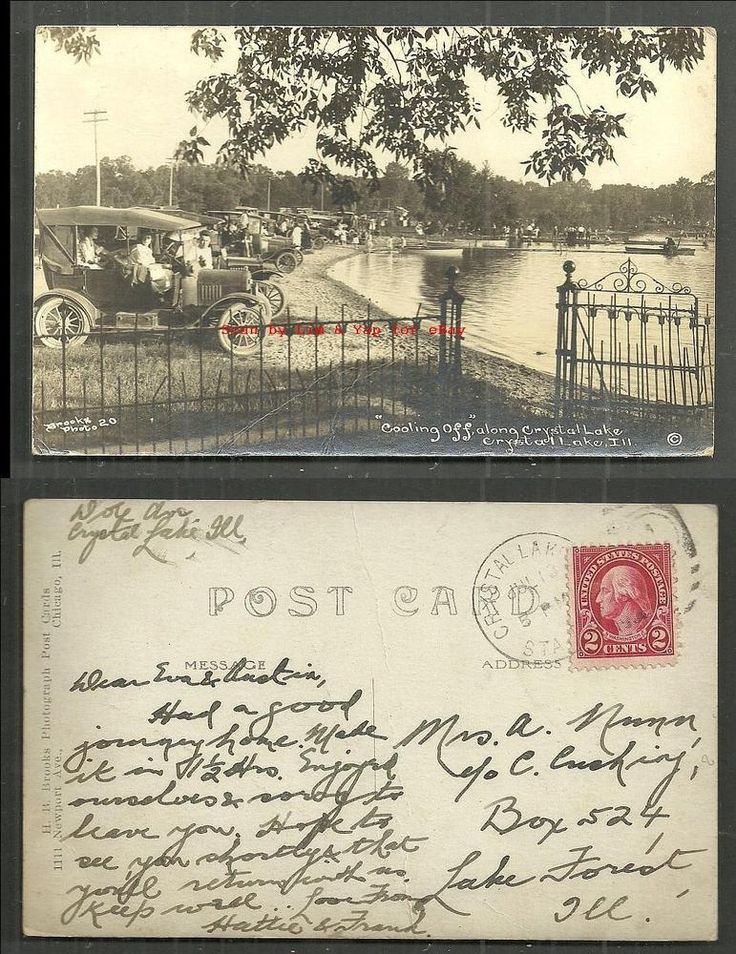 Scan by Lim & Yap for eBay
Brooks
Photo 20
"Cooling Off" along Crystal Lake
Crystal Lake, Ill.
©
Dole Av
Crystal Lake Ill,
H. B. Brooks Photograph Post Cards
1111 Newport Ave., Chicago, Ill.
POST CARD
MESSAGE
ADDRESS
CRYSTAL LAKE
STA
UNITED STATES POSTAGE
WASHINGTON
2 CENTS 2
Dear Eva & Austin,
Had a good
journey home. Made
it in 1½ Hrs. Enjoyed
ourselves & sorry to
leave you. Hope to
see you shortly & that
you'll return with us.
Keep well.. Love From
Hattie & Frank.
Mrs. A. Nunn,
c/o C. Cushing,
Box 524,
Lake Forest
Ill.